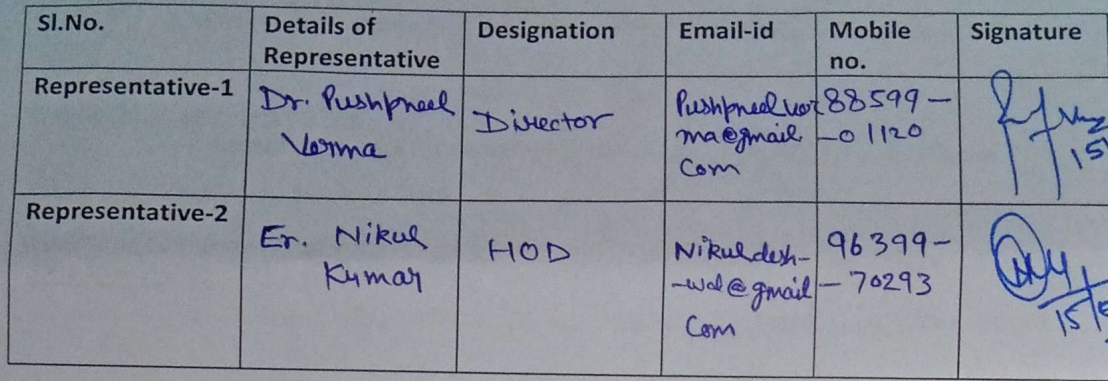 Sl.No. Details of Representative Designation Email-id Mobile no. Signature
Representative-1 Dr. Pushpneel Verma Director Pushpneelverma@gmail Com 88599-
-01120 15
Representative-2 Er. Nikul Kumar HOD Nikuldesh-
-wal@gmail Com 96399-
-70293 15/